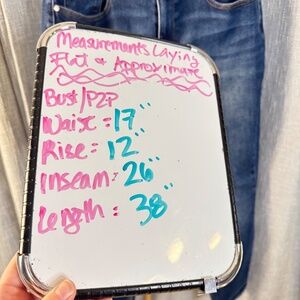 Measurements Laying
Flat & Approximate
Bust/P2P
Waist: 17"
Rise: 12"
Inseam: 26"
Length: 38"